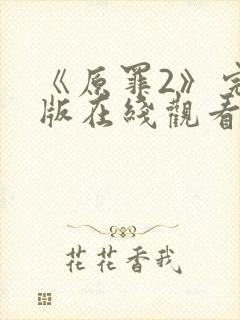 《原罪2》完
版在綫觀看
花花香我